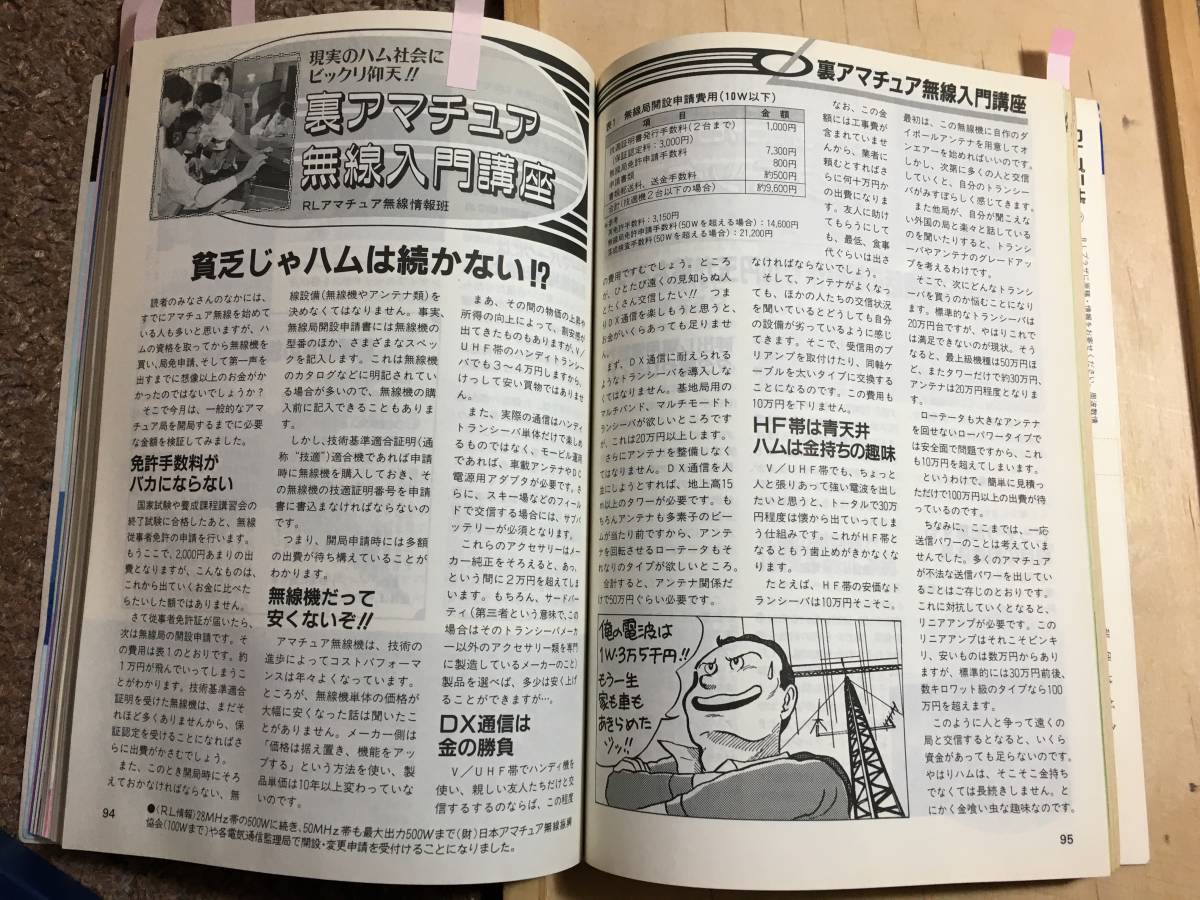 現実のハム社会に
ビックリ仰天!!
裏アマチュア
無線入門講座
RLアマチュア無線情報班
貧乏じゃハムは続かない!?
読者のみなさんのなかには、
すでにアマチュア無線を始めて
いる人も多いと思いますが、ハ
ムの資格を取ってから無線機を
買い、局免申請、そして第一声を
出すまでに想像以上のお金がか
かったのではないでしょうか?
そこで今月は、一般的なアマ
チュア局を開局するまでに必要
な金額を検証してみました。
免許手数料が
バカにならない
国家試験や養成課程講習会の
終了試験に合格したあと、無線
従事者免許の申請を行います。
もうここで、2,000円あまりの出
費となりますが、こんなものは、
これから出ていくお金に比べた
らたいした額ではありません。
さて従事者免許証が届いたら、
次は無線局の開設申請です。そ
の費用は表1のとおりです。約
1万円が飛んでいってしまうこ
とがわかります。技術基準適合
証明を受けた無線機は、まだそ
れほど多くありませんから、保
証認定を受けることになればさ
らに出費がかさむでしょう。
また、このとき開局時にそろ
えておかなければならない、無
線設備(無線機やアンテナ類)を
決めなくてはなりません。事実、
無線局開設申請書には無線機の
型番のほか、さまざまなスペッ
クを記入します。これは無線機
のカタログなどに明記されてい
る場合が多いので、無線機の購
入前に記入できることもありま
す。
しかし、技術基準適合証明(通
称“技適”)適合機であれば申請
時に無線機を購入しておき、そ
の無線機の技適証明番号を申請
書に書込まなければならないの
です。
つまり、開局申請時には多額
の出費が待ち構えていることが
わかります。
無線機だって
安くないぞ!!
アマチュア無線機は、技術の
進歩によってコストパフォーマ
ンスは年々よくなっています。
ところが、無線機単体の価格が
大幅に安くなった話は聞いたこ
とがありません。メーカー側は
「価格は据え置き、機能をアッ
プする」という方法を使い、製
品単価は10年以上変わっていな
いのです。
まあ、その間の物価の上昇や
所得の向上によって、割安感が
出てきたものもありますが、V/
UHF帯のハンディトランシー
バでも3〜4万円しますから、
けっして安い買物ではありませ
ん。
また、実際の通信はハンディ
トランシーバ単体だけで楽しめ
るものではなく、モービル運用
であれば、車載アンテナやDC
電源用アダプタが必要です。さ
らに、スキー場などのフィール
ドで交信する場合には、サブバ
ッテリーが必須となります。
これらのアクセサリーはメー
カー純正をそろえると、あっ、
という間に2万円を超えてしま
います。もちろん、サードパー
ティ(第三者という意味で、この
場合はそのトランシーバメーカ
ー以外のアクセサリー類を専門
に製造しているメーカーのこと)
製品を選べば、多少は安く上げ
ることができますが…。
DX通信は
金の勝負
V/UHF帯でハンディ機を
使い、親しい友人たちだけと交
信するするのならば、この程度
94
●〈RL情報〉28MHz帯の500Wに続き、50MHz帯も最大出力500Wまで(財)日本アマチュア無線振興
協会(100Wまで)や各電気通信監理局で開設・変更申請を受付けることになりました。
裏アマチュア無線入門講座
表1 無線局開設申請費用(10W以下)
項目 金額
技適証明書発行手数料(2台まで) 1,000円
(保証認定料:3,000円)
無線局免許申請手数料 7,300円
申請書類 800円
書類郵送料、送金手数料 約500円
合計(技適機2台以下の場合) 約9,600円
再免許手数料:3,150円
無線局免許申請手数料(50Wを超える場合):14,600円
落成検査手数料(50Wを超える場合):21,200円
の費用ですむでしょう。ところ
が、ひとたび遠くの見知らぬ人
とたくさん交信したい!! つま
りDX通信を楽しもうと思うと、
お金がいくらあっても足りませ
ん。
まず、DX通信に耐えられる
ようなトランシーバを導入しな
くてはなりません。基地局用の
マルチバンド、マルチモードト
ランシーバが欲しいところです
が、これは20万円以上します。
さらにアンテナを整備しなく
てはなりません。DX通信を人
並にしようとすれば、地上高15
m以上のタワーが必要です。も
ちろんアンテナも多素子のビー
ムが当たり前ですから、アンテ
ナを回転させるローテータもそ
れなりのタイプが欲しいところ。
合計すると、アンテナ関係だ
けで50万円ぐらい必要です。
なお、この金
額には工事費が
含まれていませ
んから、業者に
頼むとすればさ
らに何十万円か
の出費になりま
す。友人に助け
てもらうにして
も、最低、食事
代ぐらいは出さ
なければならないでしょう。
そして、アンテナがよくなっ
ても、ほかの人たちの交信状況
を聞いているとどうしても自分
の設備が劣っているように感じ
てきます。そこで、受信用のプ
リアンプを取付けたり、同軸ケ
ーブルを太いタイプに交換する
ことになるのです。この費用も
10万円を下りません。
HF帯は青天井
ハムは金持ちの趣味
V/UHF帯でも、ちょっと
人と張りあって強い電波を出し
たいと思うと、トータルで30万
円程度は懐から出ていってしま
う仕組みです。これがHF帯と
なるともう歯止めがきかなくな
ります。
たとえば、HF帯の安価なト
ランシーバは10万円そこそこ。
最初は、この無線機に自作のダ
イポールアンテナを用意してオ
ンエアーを始めればいいのです。
しかし、次第に多くの人と交信
していくと、自分のトランシー
バがみすぼらしく感じてきます。
また他局が、自分が聞こえな
い外国の局と楽々と話している
のを聞いたりすると、トランシ
ーバやアンテナのグレードアッ
プを考えるわけです。
そこで、次にどんなトランシ
ーバを買うのか悩むことになり
ます。標準的なトランシーバは
20万円台ですが、やはりこれで
は満足できないのが現状。そう
なると、最上級機種は50万円ほ
ど、またタワーだけで約30万円、
アンテナは20万円程度となりま
す。
ローテータも大きなアンテナ
を回せないローパワータイプで
は安全面で問題ですから、これ
も10万円を超えてしまいます。
というわけで、簡単に見積っ
ただけで100万円以上の出費が待
っているのです。
ちなみに、ここまでは、一応
送信パワーのことは考えていま
せんでした。多くのアマチュア
が不法な送信パワーを出してい
ることはご存じのとおりです。
これに対抗していくとなると、
リニアアンプが必要です。この
リニアアンプはそれこそピンキ
リ、安いものは数万円からあり
ますが、標準的には30万円前後、
数キロワット級のタイプなら100
万円を超えます。
このように人と争って遠くの
局と交信するとなると、いくら
資金があっても足らないのです。
やはりハムは、そこそこ金持ち
でなくては長続きしません。と
にかく金喰い虫な趣味なのです。
俺の電波は
1W・3万5千円!!
もう一生
家も車も
あきらめた
ゾッ!!
95